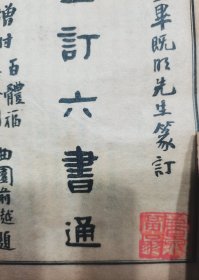 畢既明先生篆訂
訂六書通
增付百體福
曲園俞樾題